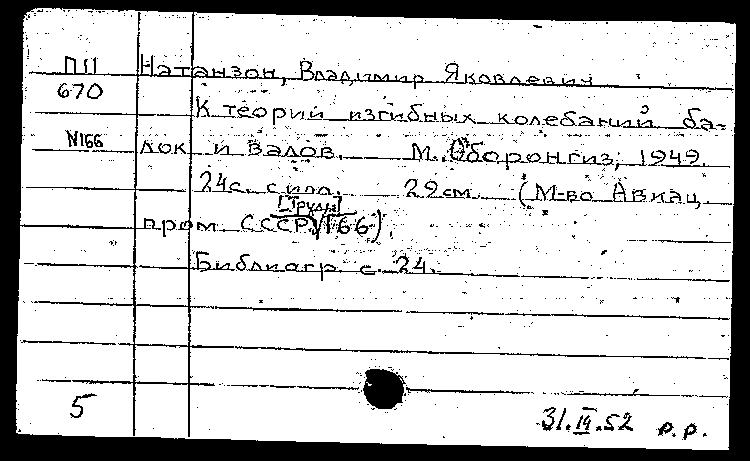 П11 Натанзон, Владимир Яковлевич
670 К теории изгибных колебаний ба-
№166 лок и валов. М., Оборонгиз, 1949.
24с. с илл. 29см. (М-во Авиац.
[Труды]
пром. СССР, 166).
Библиогр. с. 24.
5 31.III.52 р.р.